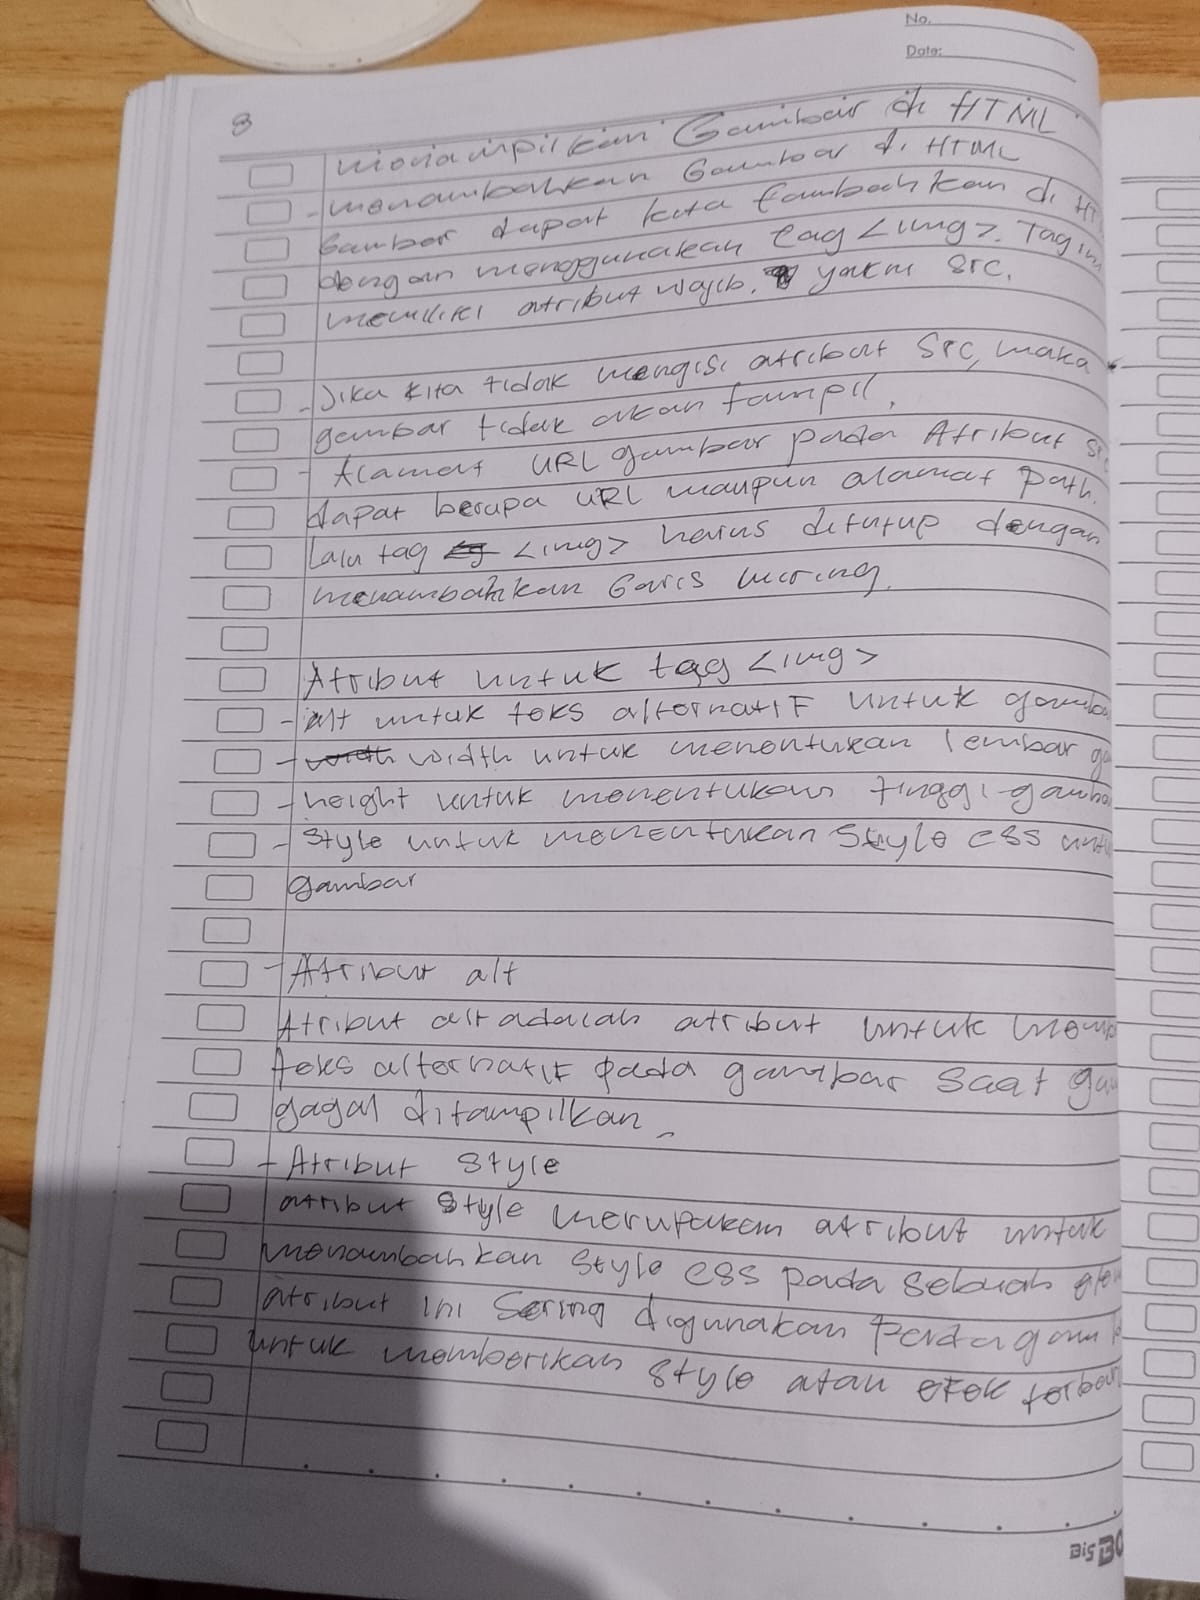 No.
Date:
8
Menampilkan Gambar di HTML
- menambahkan Gambar di HTML
Gambar dapat kita tambahkan di
dengan menggunakan tag <img>. Tag ini
memiliki atribut wajib. yakni src.
- Jika kita tidak mengisi atribut src, maka
gambar tidak akan tampil.
- Alamat URL gambar pada Atribut src
dapat berupa URL maupun alamat path.
Lalu tag <img> harus ditutup dengan
menambahkan Garis miring.
Atribut untuk tag <img>
- alt untuk teks alternatif untuk
- width untuk menentukan lembar
- height untuk menentukan tinggi
- Style untuk menentukan Style CSS
gambar
- Atribut alt
Atribut alt adalah atribut untuk
teks alternatif pada gambar saat
gagal ditampilkan
- Atribut Style
atribut Style merupakan atribut untuk
menambahkan Style CSS pada sebuah
atribut ini Sering digunakan Pada
untuk memberikan style atau efek